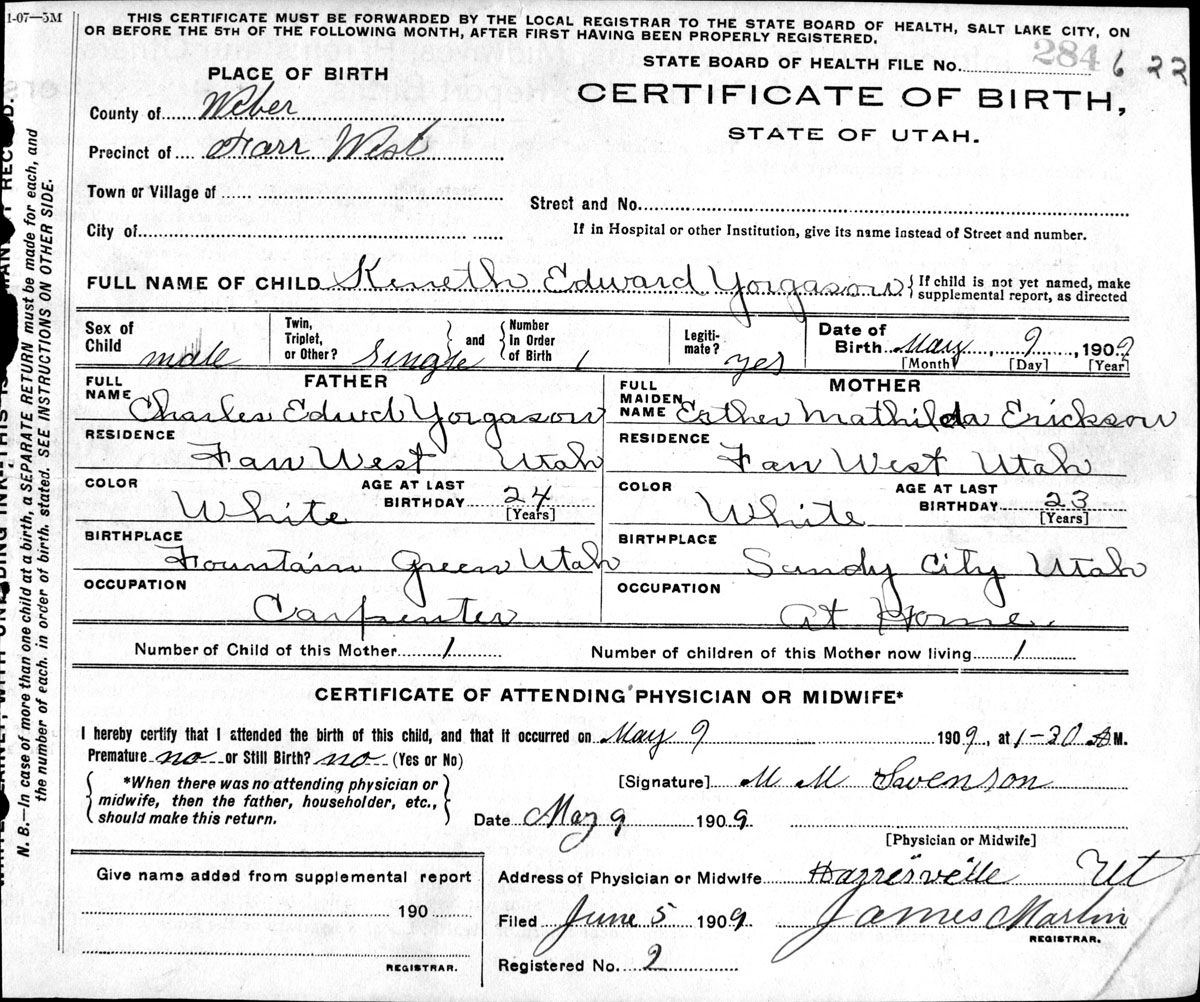 1-07—5M
THIS CERTIFICATE MUST BE FORWARDED BY THE LOCAL REGISTRAR TO THE STATE BOARD OF HEALTH, SALT LAKE CITY, ON
OR BEFORE THE 5TH OF THE FOLLOWING MONTH, AFTER FIRST HAVING BEEN PROPERLY REGISTERED.
STATE BOARD OF HEALTH FILE No. 284 622
PLACE OF BIRTH
CERTIFICATE OF BIRTH,
STATE OF UTAH.
County of Weber
Precinct of Farr West
Town or Village of
Street and No.
City of
If in Hospital or other Institution, give its name instead of Street and number.
FULL NAME OF CHILD Kenneth Edward Yorgason { If child is not yet named, make
supplemental report, as directed
Sex of Child male Twin, Triplet, or Other? Single and Number In Order of Birth 1 Legiti-mate? yes Date of Birth May, 9, 1909
[Month] [Day] [Year]
FATHER
MOTHER
FULL NAME Charles Edwd Yorgason
FULL MAIDEN NAME Esther Mathilda Erickson
RESIDENCE Farr West Utah
RESIDENCE Farr West Utah
COLOR White AGE AT LAST BIRTHDAY 24 [Years]
COLOR White AGE AT LAST BIRTHDAY 23 [Years]
BIRTHPLACE Fountain Green Utah
BIRTHPLACE Sandy City Utah
OCCUPATION Carpenter
OCCUPATION At Home
Number of Child of this Mother 1 Number of children of this Mother now living 1
CERTIFICATE OF ATTENDING PHYSICIAN OR MIDWIFE*
I hereby certify that I attended the birth of this child, and that it occurred on May 9 1909, at 1-30 A M.
Premature no or Still Birth? no (Yes or No)
*When there was no attending physician or
midwife, then the father, householder, etc.,
should make this return.
[Signature] M M Swenson
Date May 9 1909
[Physician or Midwife]
Give name added from supplemental report
190
REGISTRAR.
Address of Physician or Midwife Harrisville Ut
Filed June 5 1909 James Martin
REGISTRAR.
Registered No. 2
N. B.—In case of more than one child at a birth, a SEPARATE RETURN must be made for each, and
the number of each, in order of birth, stated. SEE INSTRUCTIONS ON OTHER SIDE.